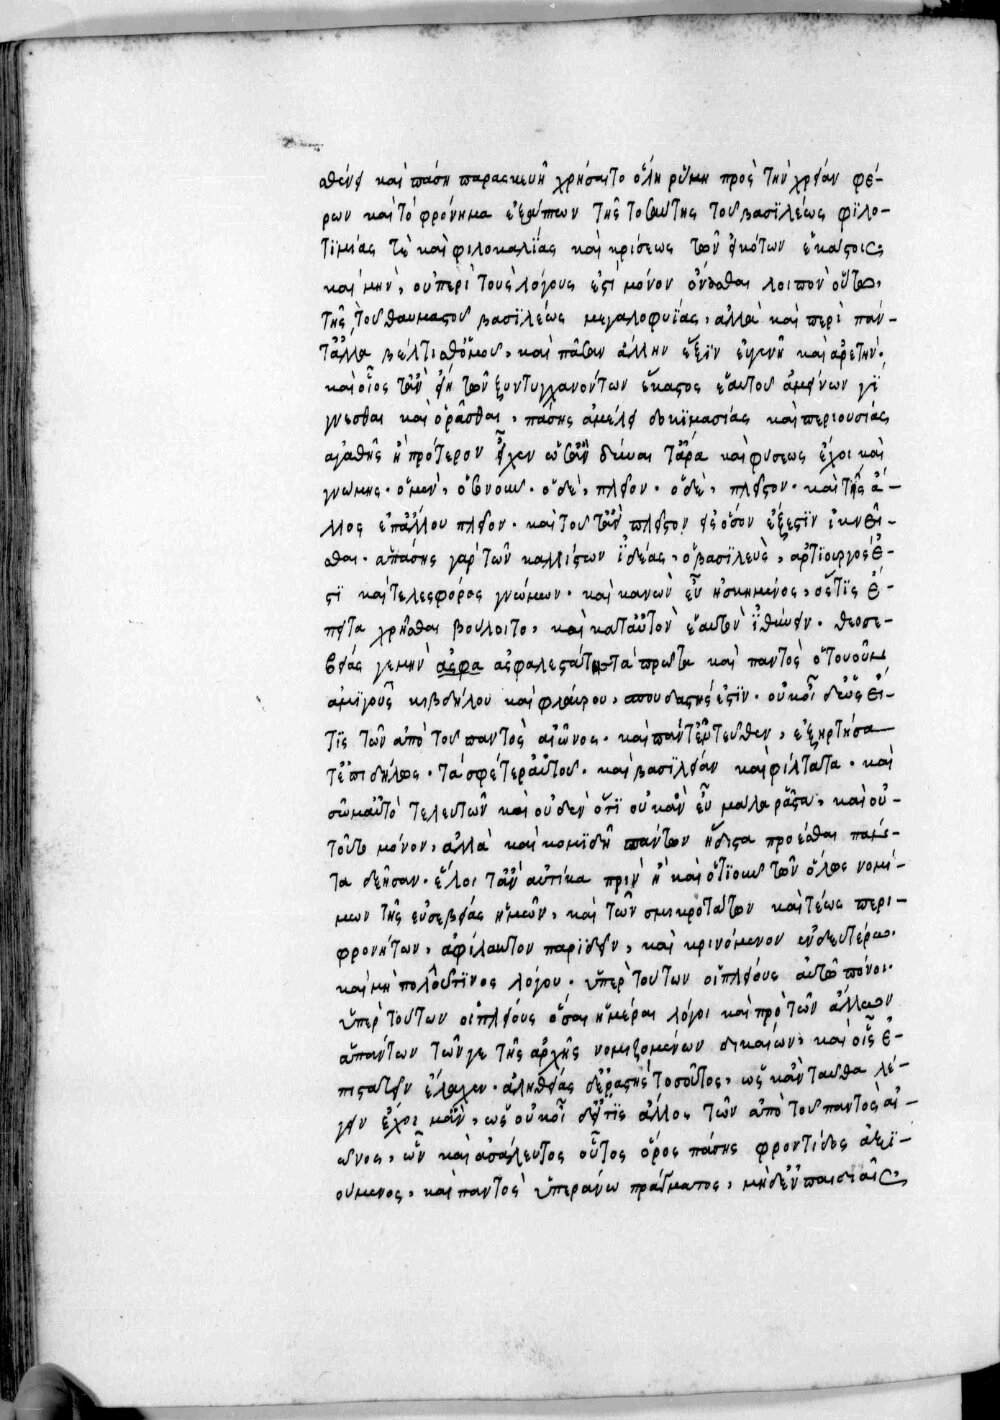 σθένει καὶ πάση παρασκευῆ χρήσαιτο ὅλη ρύμη πρὸς τὴν χρείαν φέ-
ρων καὶ τὸ φρόνημα ἐξάπτων τῆς τοιαύτης τοῦ βασϊλέως φϊλο-
τϊμίας τὲ καὶ φιλοκαλΐας καὶ κρίσεως τῶν εἰκότων ἑκάστοις
καὶ μὴν, οὐ περὶ τοὺς λόγους ἐστὶ μόνον ὀνᾶσθαι λοιπὸν οὕτω,
τῆς τοῦ θαυμαστοῦ βασϊλέως μεγαλοφυΐας, ἀλλὰ καὶ περὶ πάν-
τἄλλα βέλτισθ' ὅμου, καὶ πᾶσαν ἄλλην ἕξϊν εὐγενῆ καὶ ἀρετήν.
καὶ οἷος τἂν εἴη τῶν ξυντυγχανόντων ἕκαστος ἑαυτοῦ ἀμείνων γϊ
γνεσθαι καὶ ὁρᾶσθαι, πάσης ἀμέλει δοκϊμασίας καὶ περιουσίας
ἀγαθῆς ἢ πρότερον εἶχεν ὡς ἂν δύναι τἄρα καὶ φύσεως ἔχοι καὶ
γνώμης. ὁ μὲν, ὁτινοῦν. ὁ δὲ, πλεῖον. ὁ δὲ, πλεῖστον. καὶ τῆς ἄ-
λλος ἐπἄλλου πλεῖον. καὶ τοῦ τἂν πλεῖστον εἰς ὅσον ἔξεστϊν ἱκνεῖ-
σθαι. ἁπάσης γὰρ τῶν καλλίστων ἰδέας, ὁ βασϊλεὺς, ἀρτϊουργός ἐ-
στϊ καὶ τελεσφόρος γνώμων. καὶ κανὼν εὖ ἠσκημένος, ὅστϊς ἔ-
πειτα χρῆσθαι βούλοιτο, καὶ κατ' αὐτὸν ἑαυτὸν ἰθύνειν. θεοσε-
βείας γε μὴν ἀσφα ἀσφαλεστάτης τὰ πρῶτα καὶ παντὸς ὁτουοῦν
ἀμϊγοῦς κιβδήλου καὶ φλαύρου, σπουδαστής ἐστϊν. οὐκ οἶδ' εὖ εἴ-
τϊς τῶν ἀπὸ τοῦ παντὸς αἰῶνος. καὶ πάντ' ἐντεῦθεν, ἐξηρτήσα-
τ' ἐπιδήλως. τὰ σφέτερ' αὐτοῦ. καὶ βασϊλείαν καὶ φίλτατα. καὶ
σῶμ' αὐτὸ τελευτῶν καὶ οὐδὲν ὅτϊ οὐκ ἂν εὖ μάλα ρᾷστα, καὶ οὐ-
τοῦτο μόνον, ἀλλὰ καὶ κομϊδῆ πάντων ἥδιστα προέσθαι πάν-
τα δεῆσαν. ἕλοι τἂν αὐτίκα πρὶν ἢ καὶ ὁτϊοῦν τῶν ὅλως νομί-
μων τῆς εὐσεβείας ἡμῶν, καὶ τῶν σμικροτάτων καὶ τέως περι-
φρονήτων, ἀφίλαυτον παριδεῖν, καὶ κρινόμενον ἐν δευτέρω.
καὶ μὴ πολλοῦ τϊνος λόγου. ὑπὲρ τούτων οἱ πλείους αὐτῶ πόνοι.
ὑπὲρ τούτων οἱ πλείους ὅσαι ἡμέραι λόγοι καὶ πρὸ τῶν ἄλλων
ἁπάντων τῶν γε τῆς ἀρχῆς νομιζομένων δικαίων, καὶ οἷς ἐ-
πιστατεῖν ἔλαχεν. ἀληθείας δ' ἐραστὴς τοσοῦτος, ὡς κἀνταῦθα λέ-
γειν ἔχοι μἂν, ὡς οὐκ οἶδ' εἴτϊς ἄλλος τῶν ἀπὸ τοῦ παντὸς αἰ-
ῶνος, ὧν καὶ ἀσάλευτος οὗτος ὅρος πάσης φροντίδος ἀξϊ-
ούμενος, καὶ παντὸς ὑπεράνω πράγματος, μηδὲν παιδιαῖς